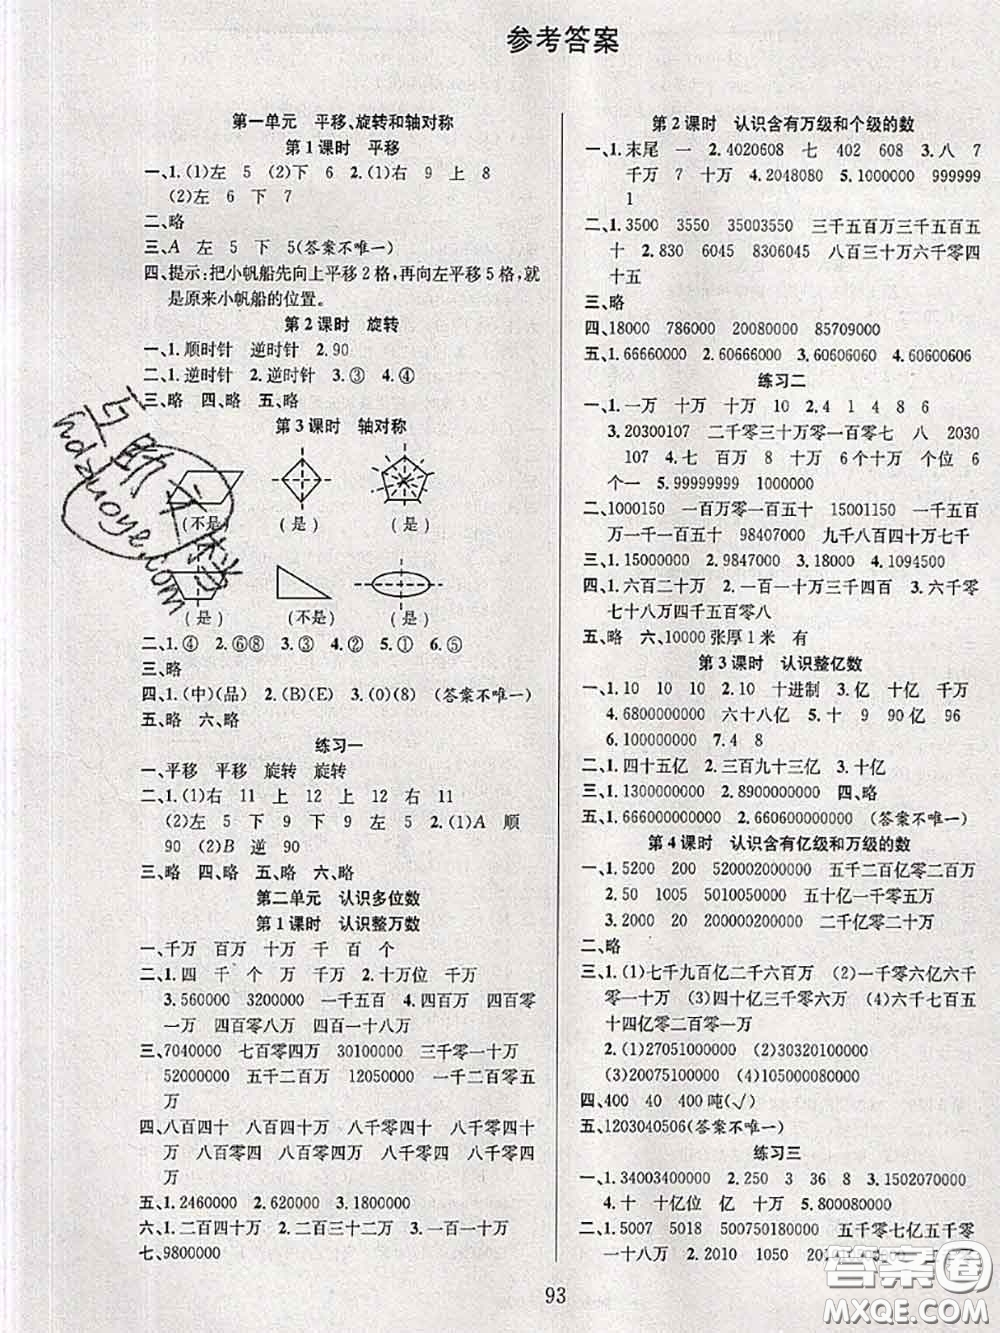 参考答案
第一单元 平移、旋转和轴对称
第1课时 平移
一、1.(1)左 5 (2)下 6 2.(1)右 9 上 8
(2)左 6 下 7
二、略
三、A 左 5 下 5(答案不唯一)
四、提示:把小帆船先向上平移2格,再向左平移5格,就
是原来小帆船的位置。
第2课时 旋转
一、1.顺时针 逆时针 2.90
二、1.逆时针 2.逆时针 3.③ 4.④
三、略 四、略 五、略
第3课时 轴对称
一、
(不是) (是) (是)
(是) (不是) (是)
二、1.④ 2.⑥⑧ 3.③ 4.② 5.① 6.⑤
三、略
四、1.(中)(品) 2.(B)(E) 3.(0)(8) (答案不唯一)
五、略 六、略
练习一
一、平移 平移 旋转 旋转
二、1.(1)右 11 上 12 上 12 右 11
(2)左 5 下 9 下 9 左 5 2.(1)A 顺
90 (2)B 逆 90
三、略 四、略 五、略 六、略
第二单元 认识多位数
第1课时 认识整万数
一、千万 百万 十万 千 百 个
二、1.四 千 个 万 千万 2.十万位 千万
3.560000 3200000 一千五百 4.四百万 四百零
一万 四百零八万 四百一十八万
三、7040000 七百零四万 30100000 三千零一十万
52000000 五千二百万 12050000 一千二百零五
万
四、八百四十 八百四十万 八千零四十 八千零四十
万 八千四百 八千四百万 八千零四 八千零四万
五、1.2460000 2.620000 3.1800000
六、1.二百四十万 2.二百三十二万 3.一百零一万
七、9800000
第2课时 认识含有万级和个级的数
一、1.末尾 一 2.4020608 七 402 608 3.八 7
千万 7 十万 4.2048080 5.1000000 999999
1
二、1.3500 3550 35003550 三千五百万三千五百五
十 2.830 6045 8306045 八百三十万六千零四
十五
三、略
四、18000 786000 20080000 85709000
五、1.66660000 2.60666000 3.60606060 4.60600606
练习二
一、1.一万 十万 十万 10 2.4 1 4 8 6
3.20300107 二千零三十万零一百零七 八 2030
107 4.七 百万 8 十万 6 十万 个位 6
个一 5.99999999 1000000
二、1000150 一百万零一百五十 15001150 一千五百
万一千一百五十 98407000 九千八百四十万七千
三、1.15000000 2.9847000 3.18000 4.1094500
四、1.六百二十万 2.一百一十万三千四百 3.六千零
七十八万四千五百零八
五、略 六、10000张厚1米 有
第3课时 认识整亿数
一、1.10 10 10 2.10 十进制 3.亿 十亿 千万
4.6800000000 六十八亿 5.十 9 90亿 96
6.100000000 7.4 8
二、1.四十五亿 2.三百九十三亿 3.十亿
三、1.1300000000 2.8900000000 四、略
五、1.666000000000 2.660600000000 (答案不唯一)
第4课时 认识含有亿级和万级的数
一、1.5200 200 520002000000 五千二百亿零二百万
2.50 1005 5010050000 五十亿一千零五万
3.2000 20 200000200000 二千亿零二十万
二、略
三、1.(1)七千九百亿二千六百万 (2)一千零六亿六千
六百万 (3)四十亿三千零六万 (4)九千七百五
十四亿零二百零一万
2.(1)27051000000 (2)30320100000
(3)20075100000 (4)105000080000
四、400 40 400吨(√)
五、1203040506(答案不唯一)
练习三
一、1.34003400000 2.250 3 36 8 3.1502070000
4.十 十亿位 亿 十万 5.800080000
二、1.5007 5018 500750180000 五千零七亿五千零
一十八万 2.2010 1050
93
互助文档
hdzuoye.com
答案圈
MXQE.COM